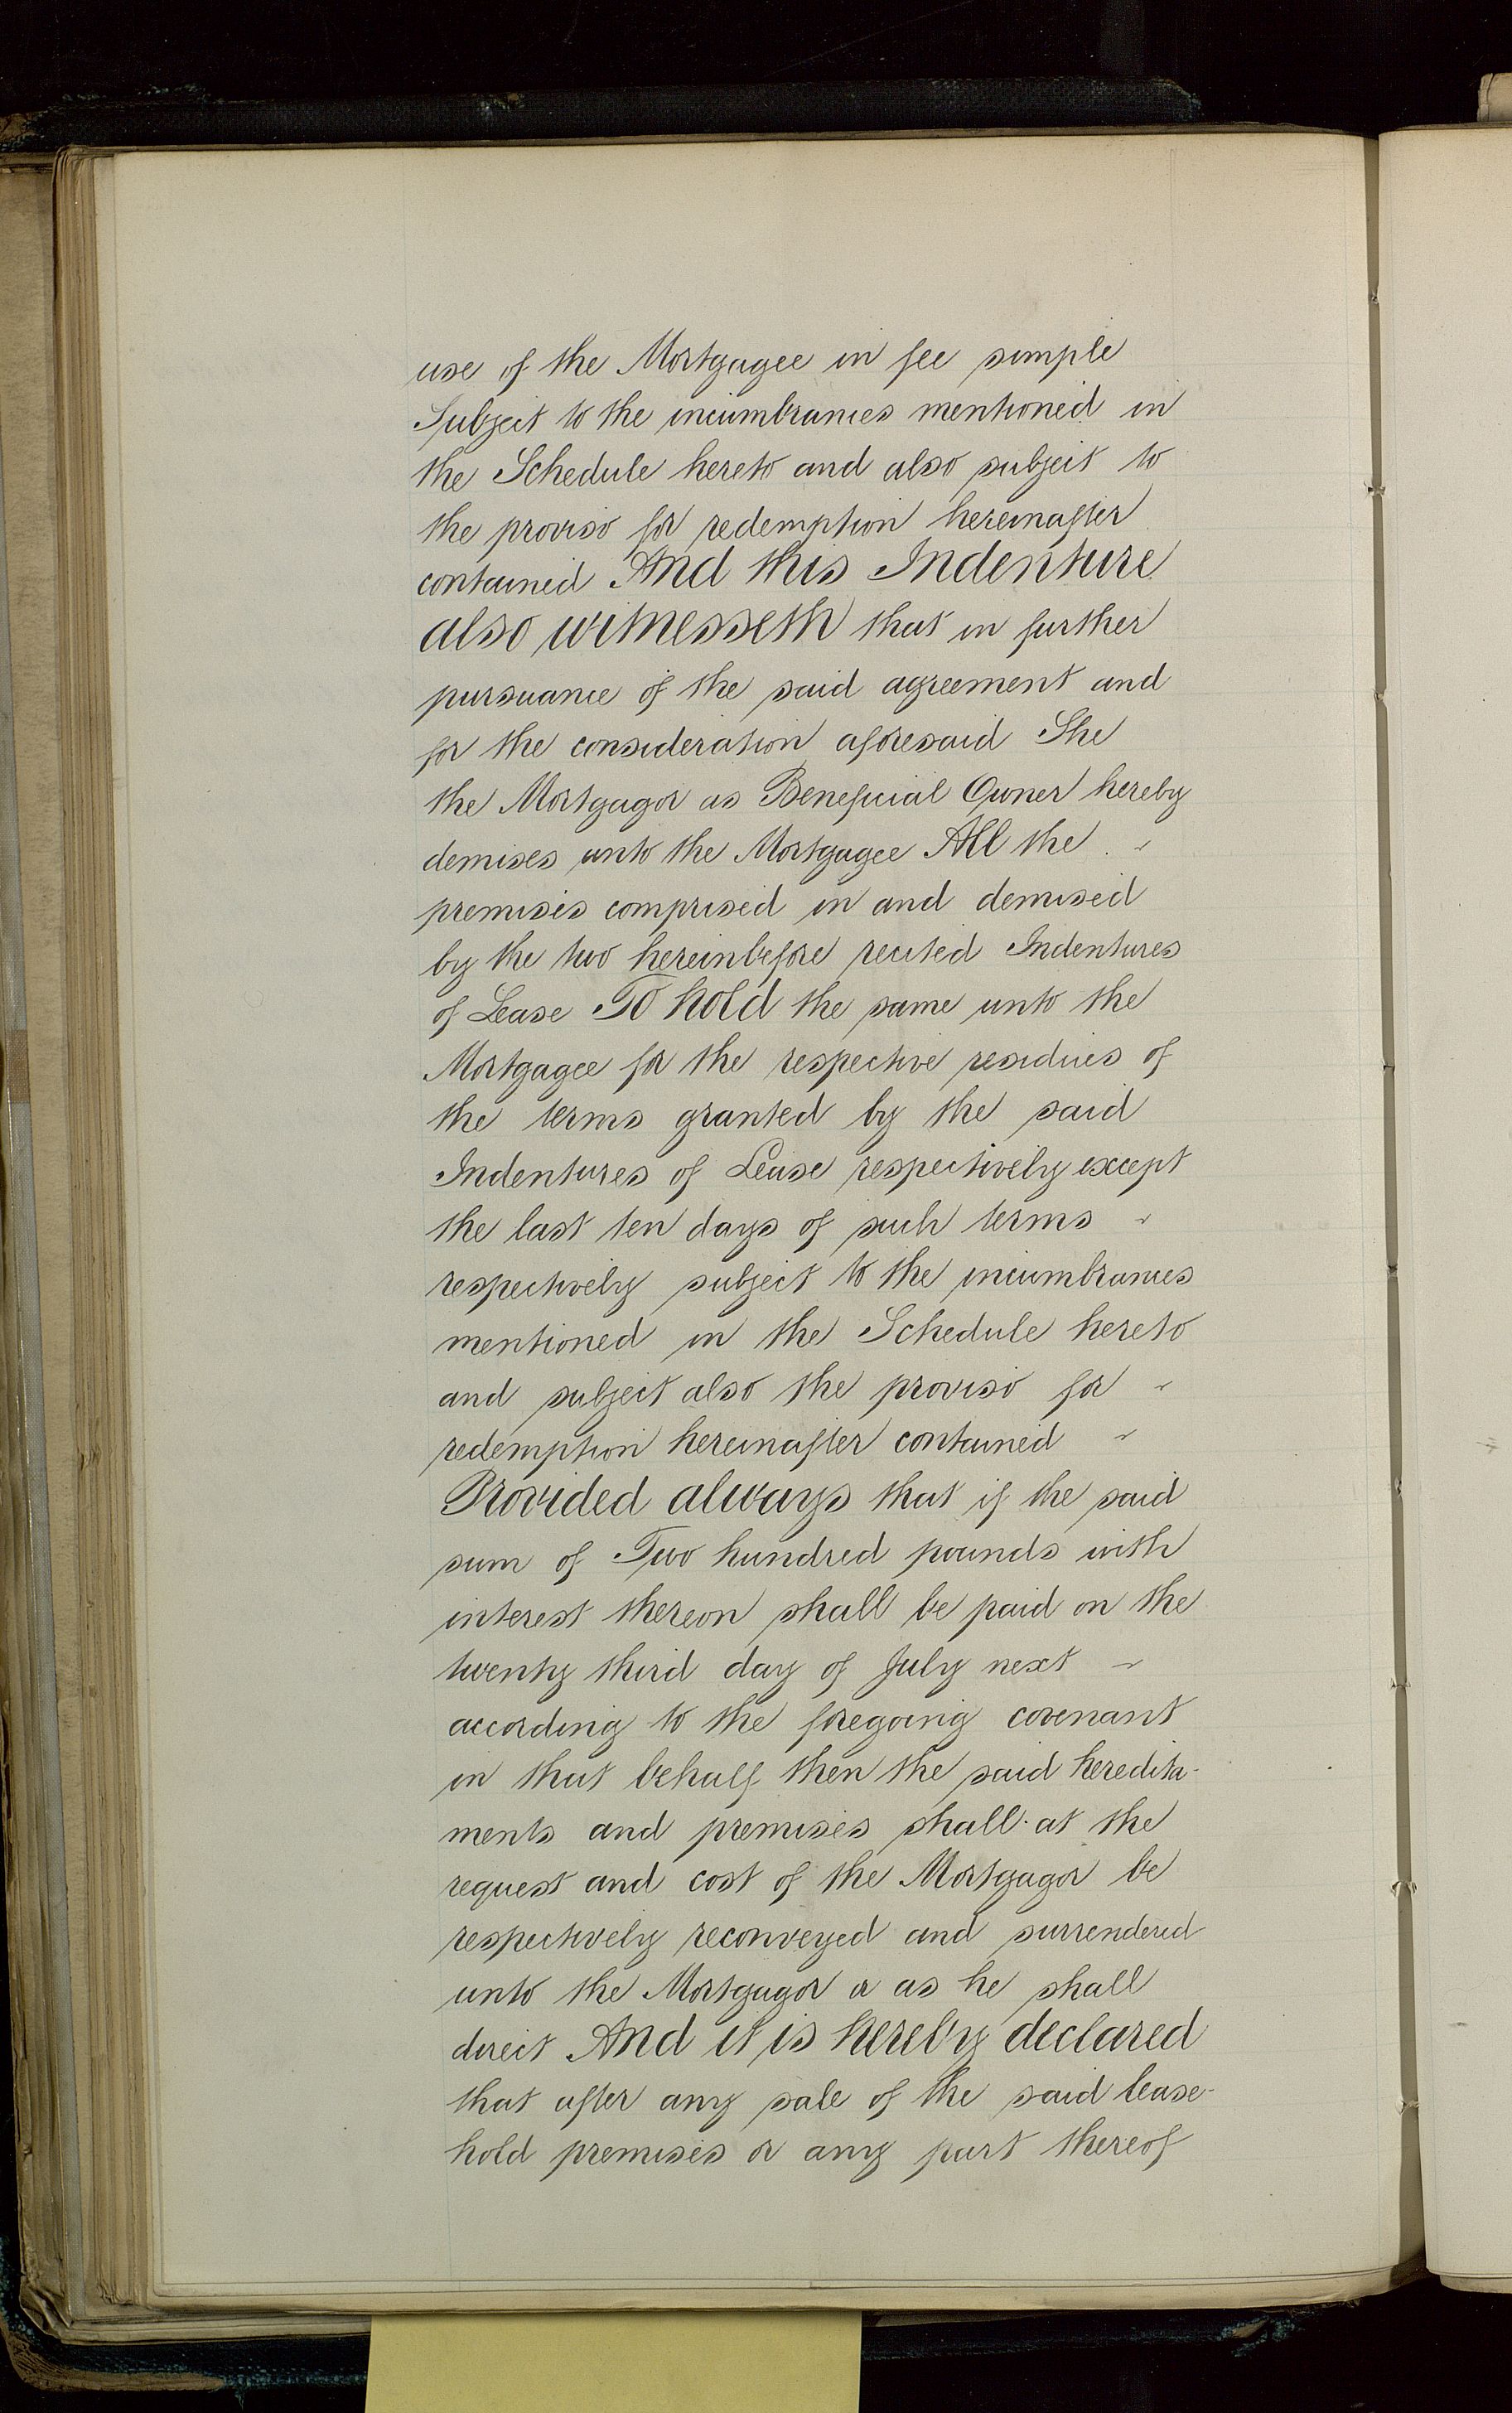 use of the Mortgagee in fee simple
Subject to the incumbrances mentioned in
the Schedule hereto and also subject to
the proviso for redemption hereinafter
contained And this Indenture
also witnesseth that in further
pursuance of the said agreement and
for the consideration aforesaid She
the Mortgagor as Beneficial Owner hereby
demises unto the Mortgagee All the
premises comprised in and demised
by the two hereinbefore recited Indentures
of Lease To hold the same unto the
Mortgagee for the respective residues of
the terms granted by the said
Indentures of Lease respectively except
the last ten days of such terms
respectively subject to the incumbrances
mentioned in the Schedule hereto
and subject also the proviso for
redemption hereinafter contained
Provided always that if the said
sum of Two hundred pounds with
interest thereon shall be paid on the
twenty third day of July next
according to the foregoing covenant
in that behalf then the said heredita-
ments and premises shall at the
request and cost of the Mortgagor be
respectively reconveyed and surrendered
unto the Mortgagor or as he shall
direct And it is hereby declared
that after any sale of the said lease-
hold premises or any part thereof